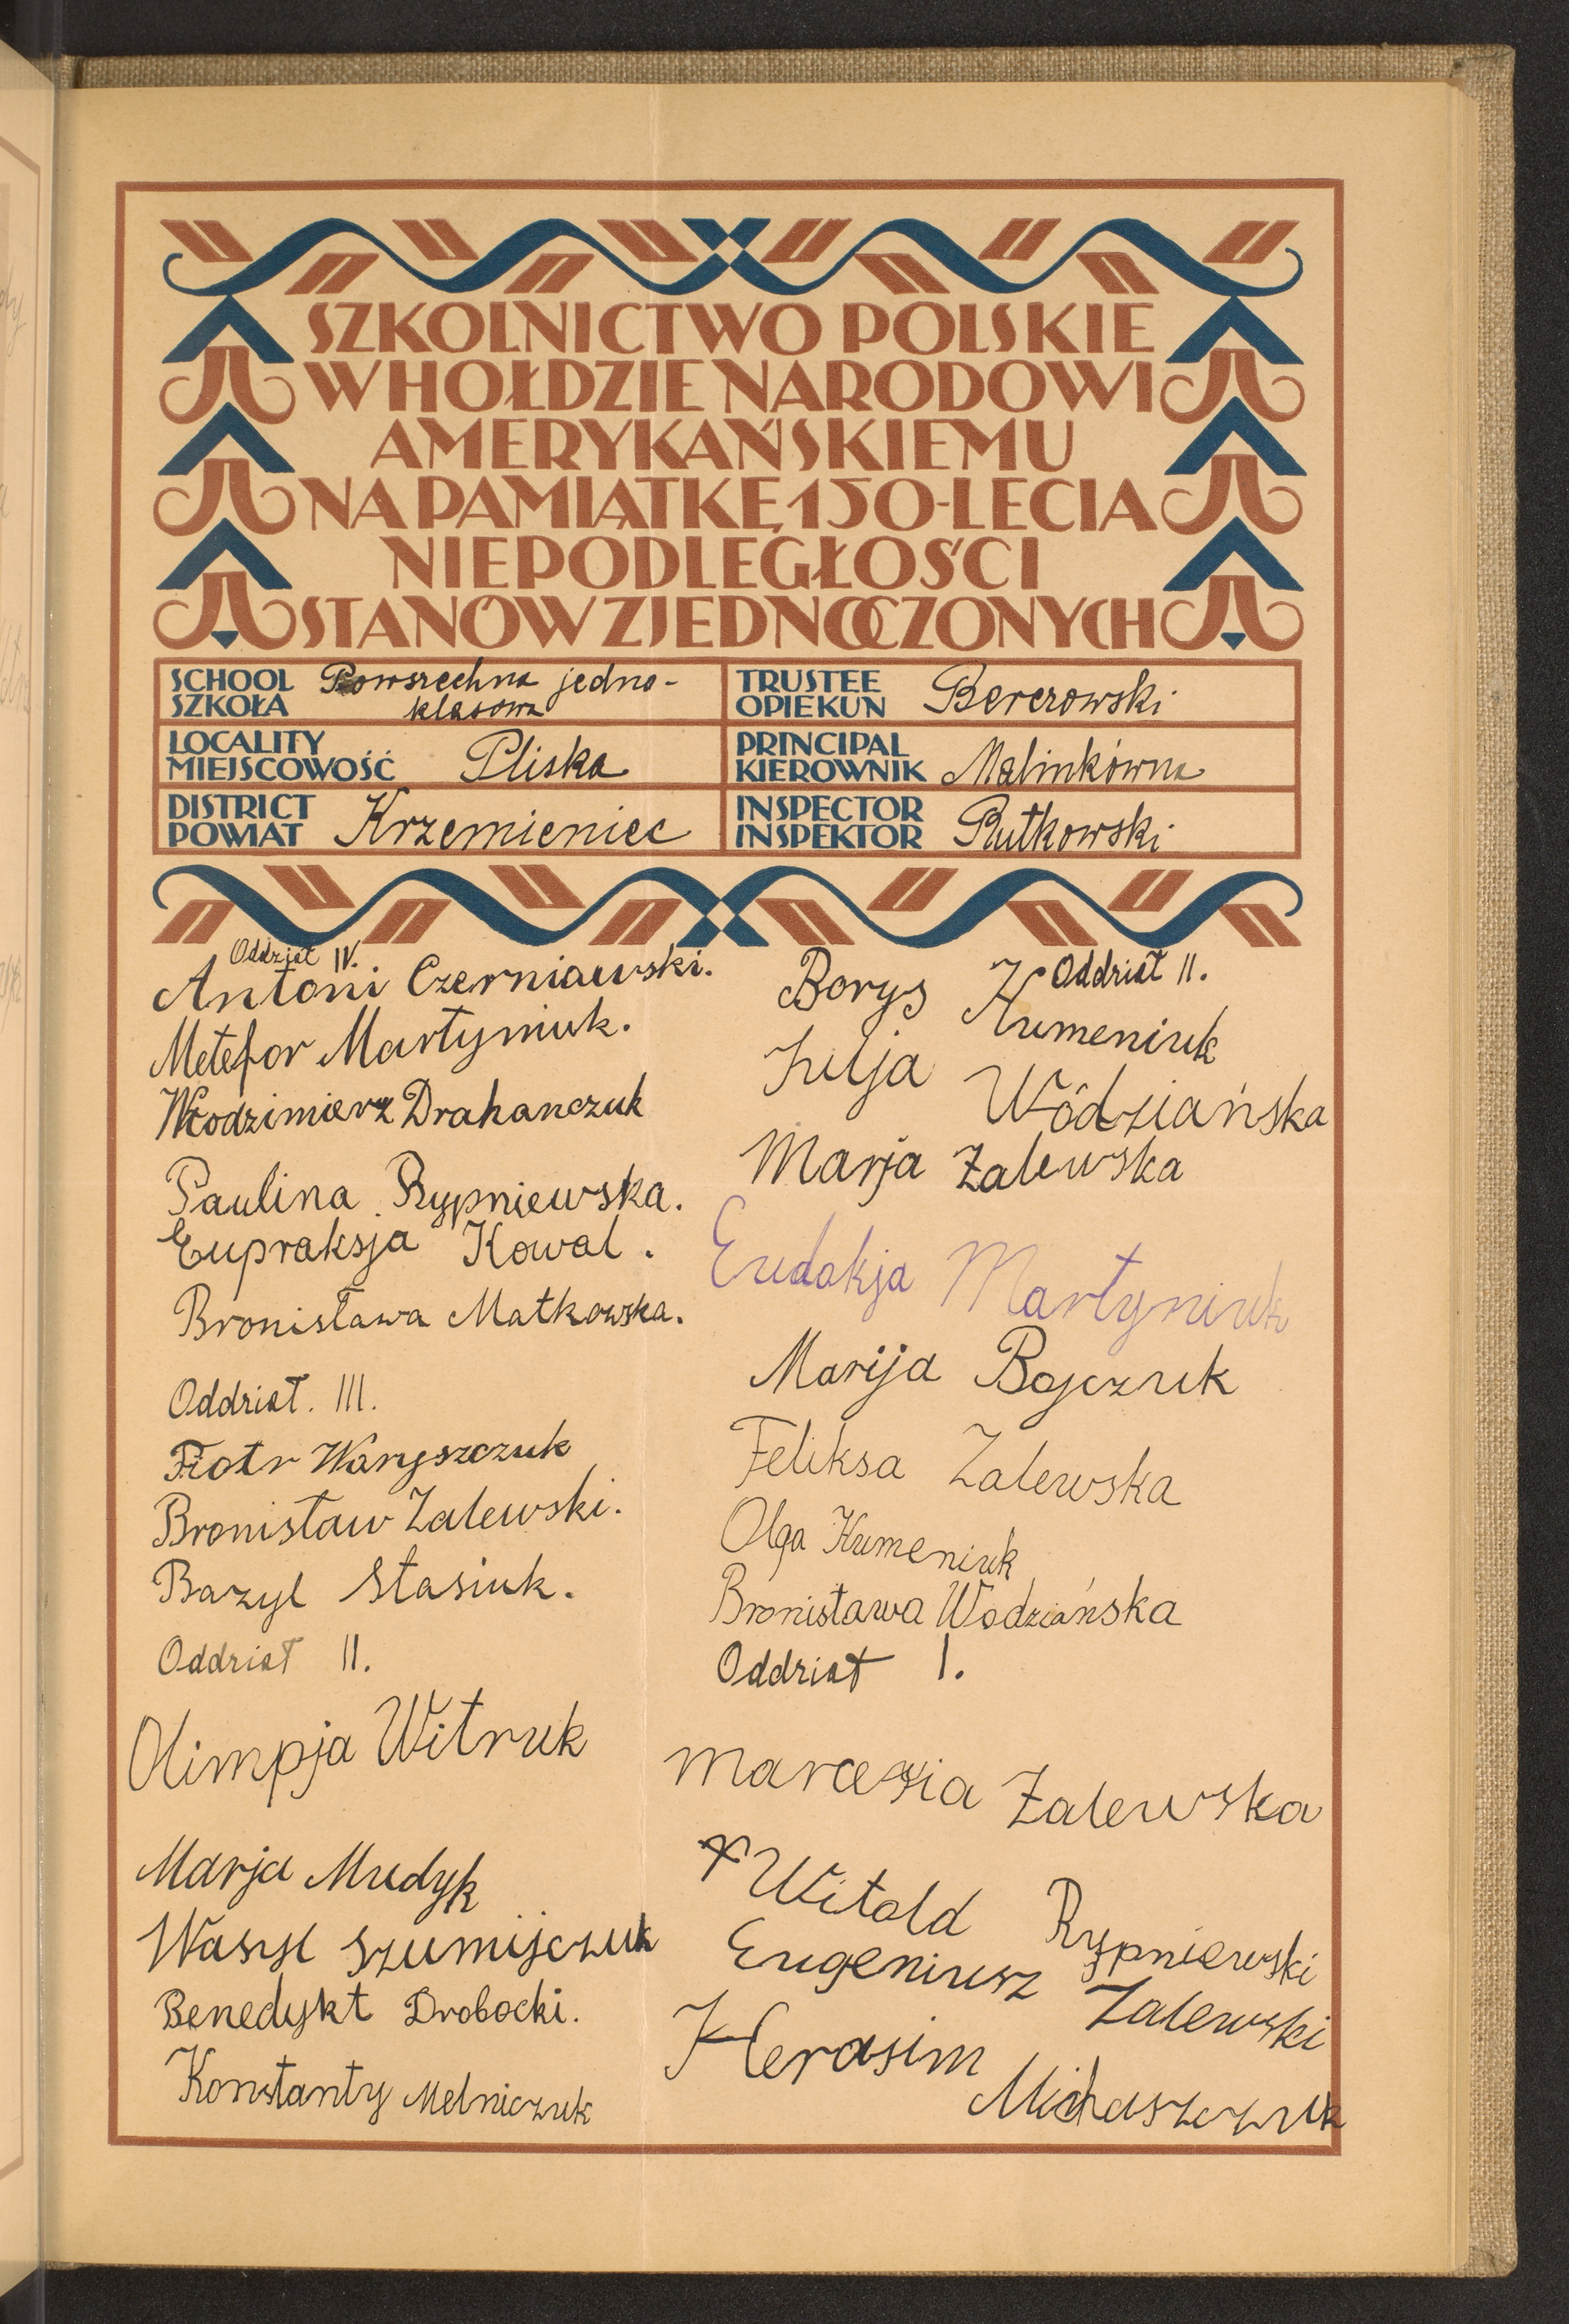 SZKOLNICTWO POLSKIE
W HOŁDZIE NARODOWI
AMERYKAŃSKIEMU
NA PAMIĄTKĘ 150-LECIA
NIEPODLEGŁOŚCI
STANÓW ZJEDNOCZONYCH
SCHOOL
SZKOŁA
Powszechna jedno-
klasowa
TRUSTEE
OPIEKUN
Berezowski
LOCALITY
MIEJSCOWOŚĆ
Pliska
PRINCIPAL
KIEROWNIK
Malinkówna
DISTRICT
POWIAT
Krzemieniec
INSPECTOR
INSPEKTOR
Rutkowski
Oddział IV.
Antoni Czerniawski.
Metefor Martyniuk.
Włodzimierz Drahanczuk
Paulina Rypniewska.
Eupraksja Kowal.
Bronisława Matkowska.
Oddział. III.
Piotr Waryszczuk
Bronisław Zalewski.
Bazyl Stasiuk.
Oddział II.
Olimpja Witruk
Marja Mudyk
Wasyl Szumijczuk
Benedykt Drobocki.
Konstanty Melniczuk
Oddział II.
Borys Humeniuk
Julja Wódziańska
Marja Zalewska
Eudokja Martyniuk
Marija Bojczuk
Feliksa Zalewska
Olga Humeniuk
Bronisława Wodziańska
Oddział I.
Zalewska
Witold Rypniewski
Eugeniusz Zalewski
Herasim
Michaszczuk